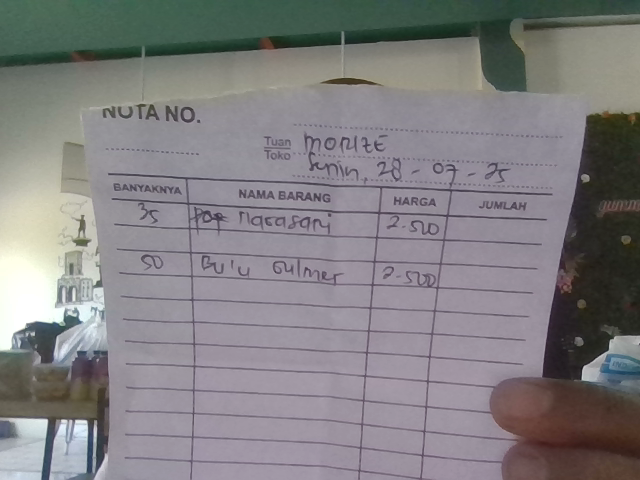 NOTA NO.
Tuan MORIZE
Toko Senin, 28 - 07 - 25
BANYAKNYA NAMA BARANG HARGA JUMLAH
35 nasasari 2.500
50 Bu'u 2.500